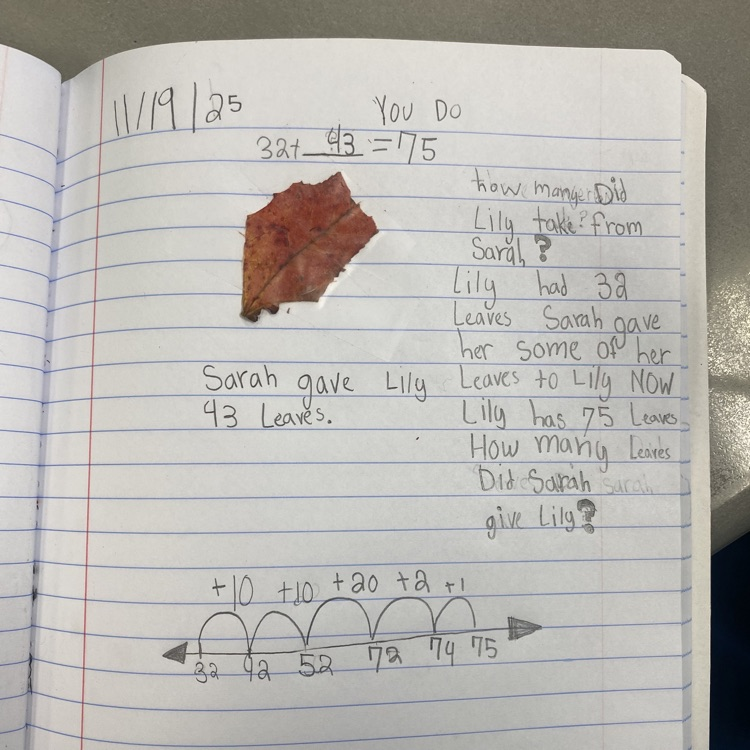 11/19/25
You Do
32+ 43 = 75
how many Did
Lily take? from
Sarah?
Lily had 32
Leaves Sarah gave
her some of her
Leaves to Lily NOW
Lily has 75 Leaves
How many Leaves
Did Sarah sarah
give Lily?
Sarah gave Lily
43 Leaves.
+10 +10 +20 +2 +1
32 42 52 72 74 75